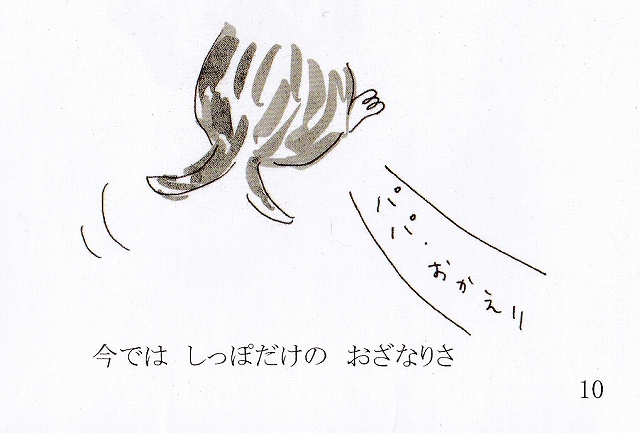 パパ・おかえり
今では しっぽだけの おざなりさ
10